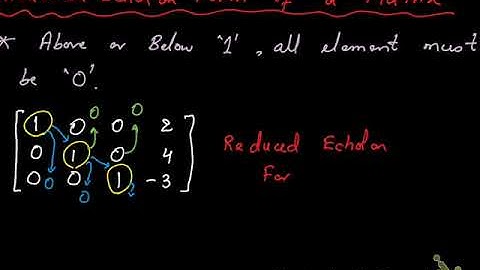 Echelon Form of a Matrix
* Above or Below '1', all element must
be '0'.
0 0
1 0 0 2
0 1 0 4
0 0 0 1 -3
0
Reduced Echelon
For